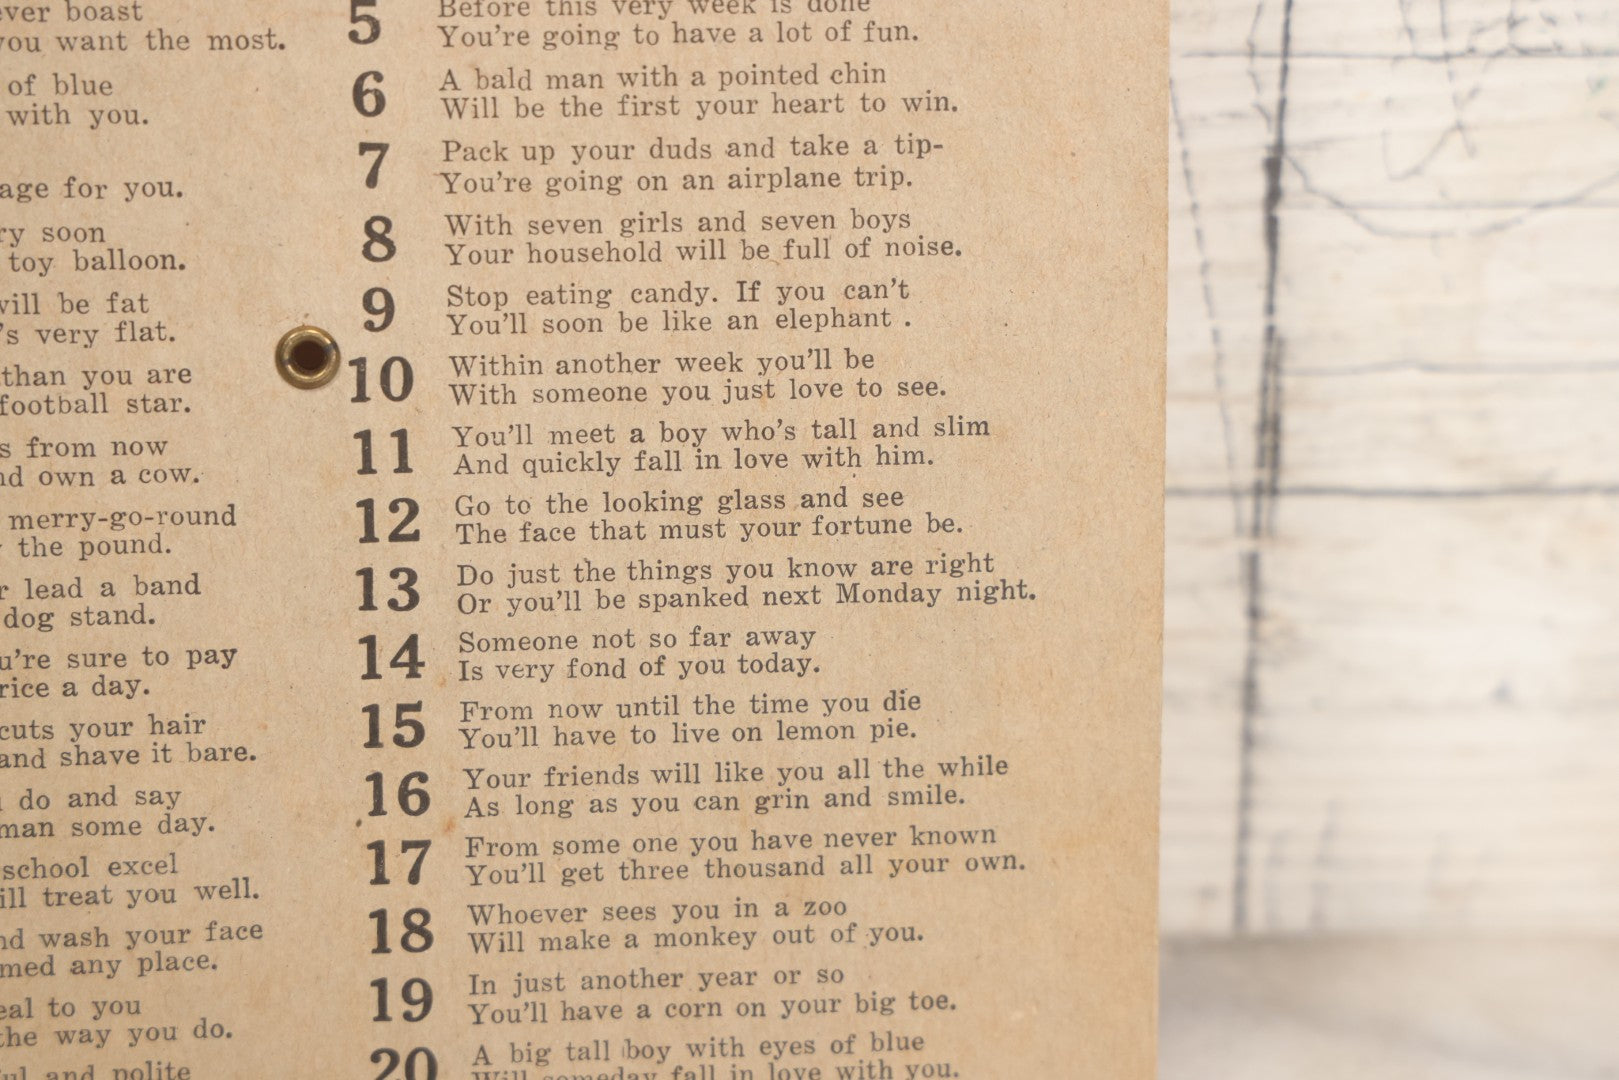 ever boast
you want the most.
of blue
with you.
age for you.
ry soon
toy balloon.
will be fat
's very flat.
than you are
football star.
s from now
nd own a cow.
merry-go-round
the pound.
r lead a band
dog stand.
u're sure to pay
rice a day.
cuts your hair
and shave it bare.
do and say
man some day.
school excel
ill treat you well.
nd wash your face
med any place.
eal to you
the way you do.
ful and polite
5 Before this very week is done
You're going to have a lot of fun.
6 A bald man with a pointed chin
Will be the first your heart to win.
7 Pack up your duds and take a tip-
You're going on an airplane trip.
8 With seven girls and seven boys
Your household will be full of noise.
9 Stop eating candy. If you can't
You'll soon be like an elephant .
10 Within another week you'll be
With someone you just love to see.
11 You'll meet a boy who's tall and slim
And quickly fall in love with him.
12 Go to the looking glass and see
The face that must your fortune be.
13 Do just the things you know are right
Or you'll be spanked next Monday night.
14 Someone not so far away
Is very fond of you today.
15 From now until the time you die
You'll have to live on lemon pie.
16 Your friends will like you all the while
As long as you can grin and smile.
17 From some one you have never known
You'll get three thousand all your own.
18 Whoever sees you in a zoo
Will make a monkey out of you.
19 In just another year or so
You'll have a corn on your big toe.
20 A big tall boy with eyes of blue
Will someday fall in love with you.